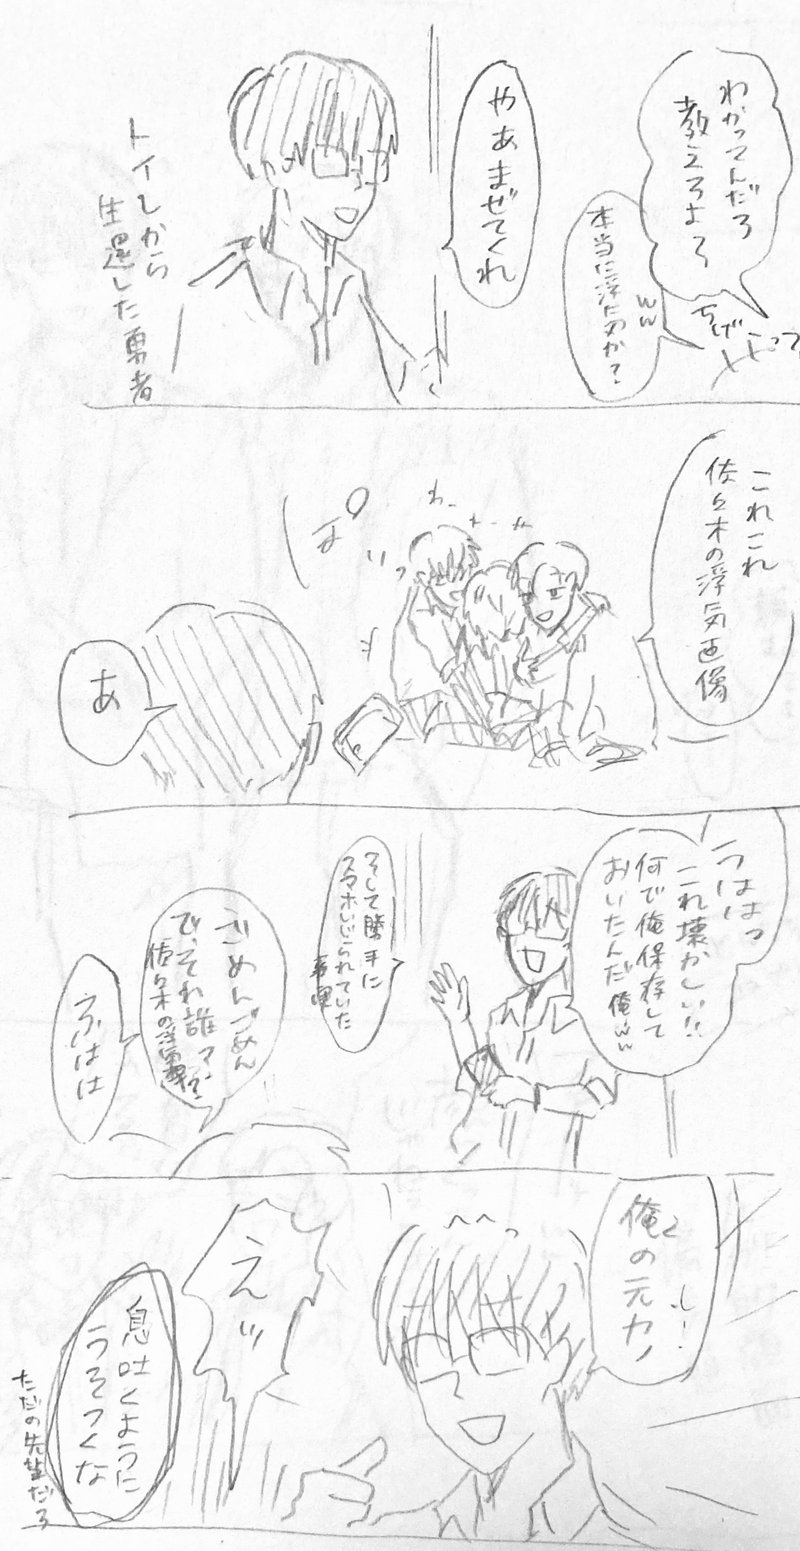 わかってんだろ
教えろよろ
本当に浮気か?
ww
ちげー
やあまぜてくれ
トイレから
生還した勇者
これこれ
佐々木の浮気画像
わー
あ
うははっ
これ壊かしい!!
何で俺保存して
おいたんだ俺ww
そして勝手に
スマホいじられていた
ごめんごめん
で、それ誰?
佐々木の浮気
ふはは
俺の元カノ
えッ
息吐くように
うそつくな
ただの先輩だろ